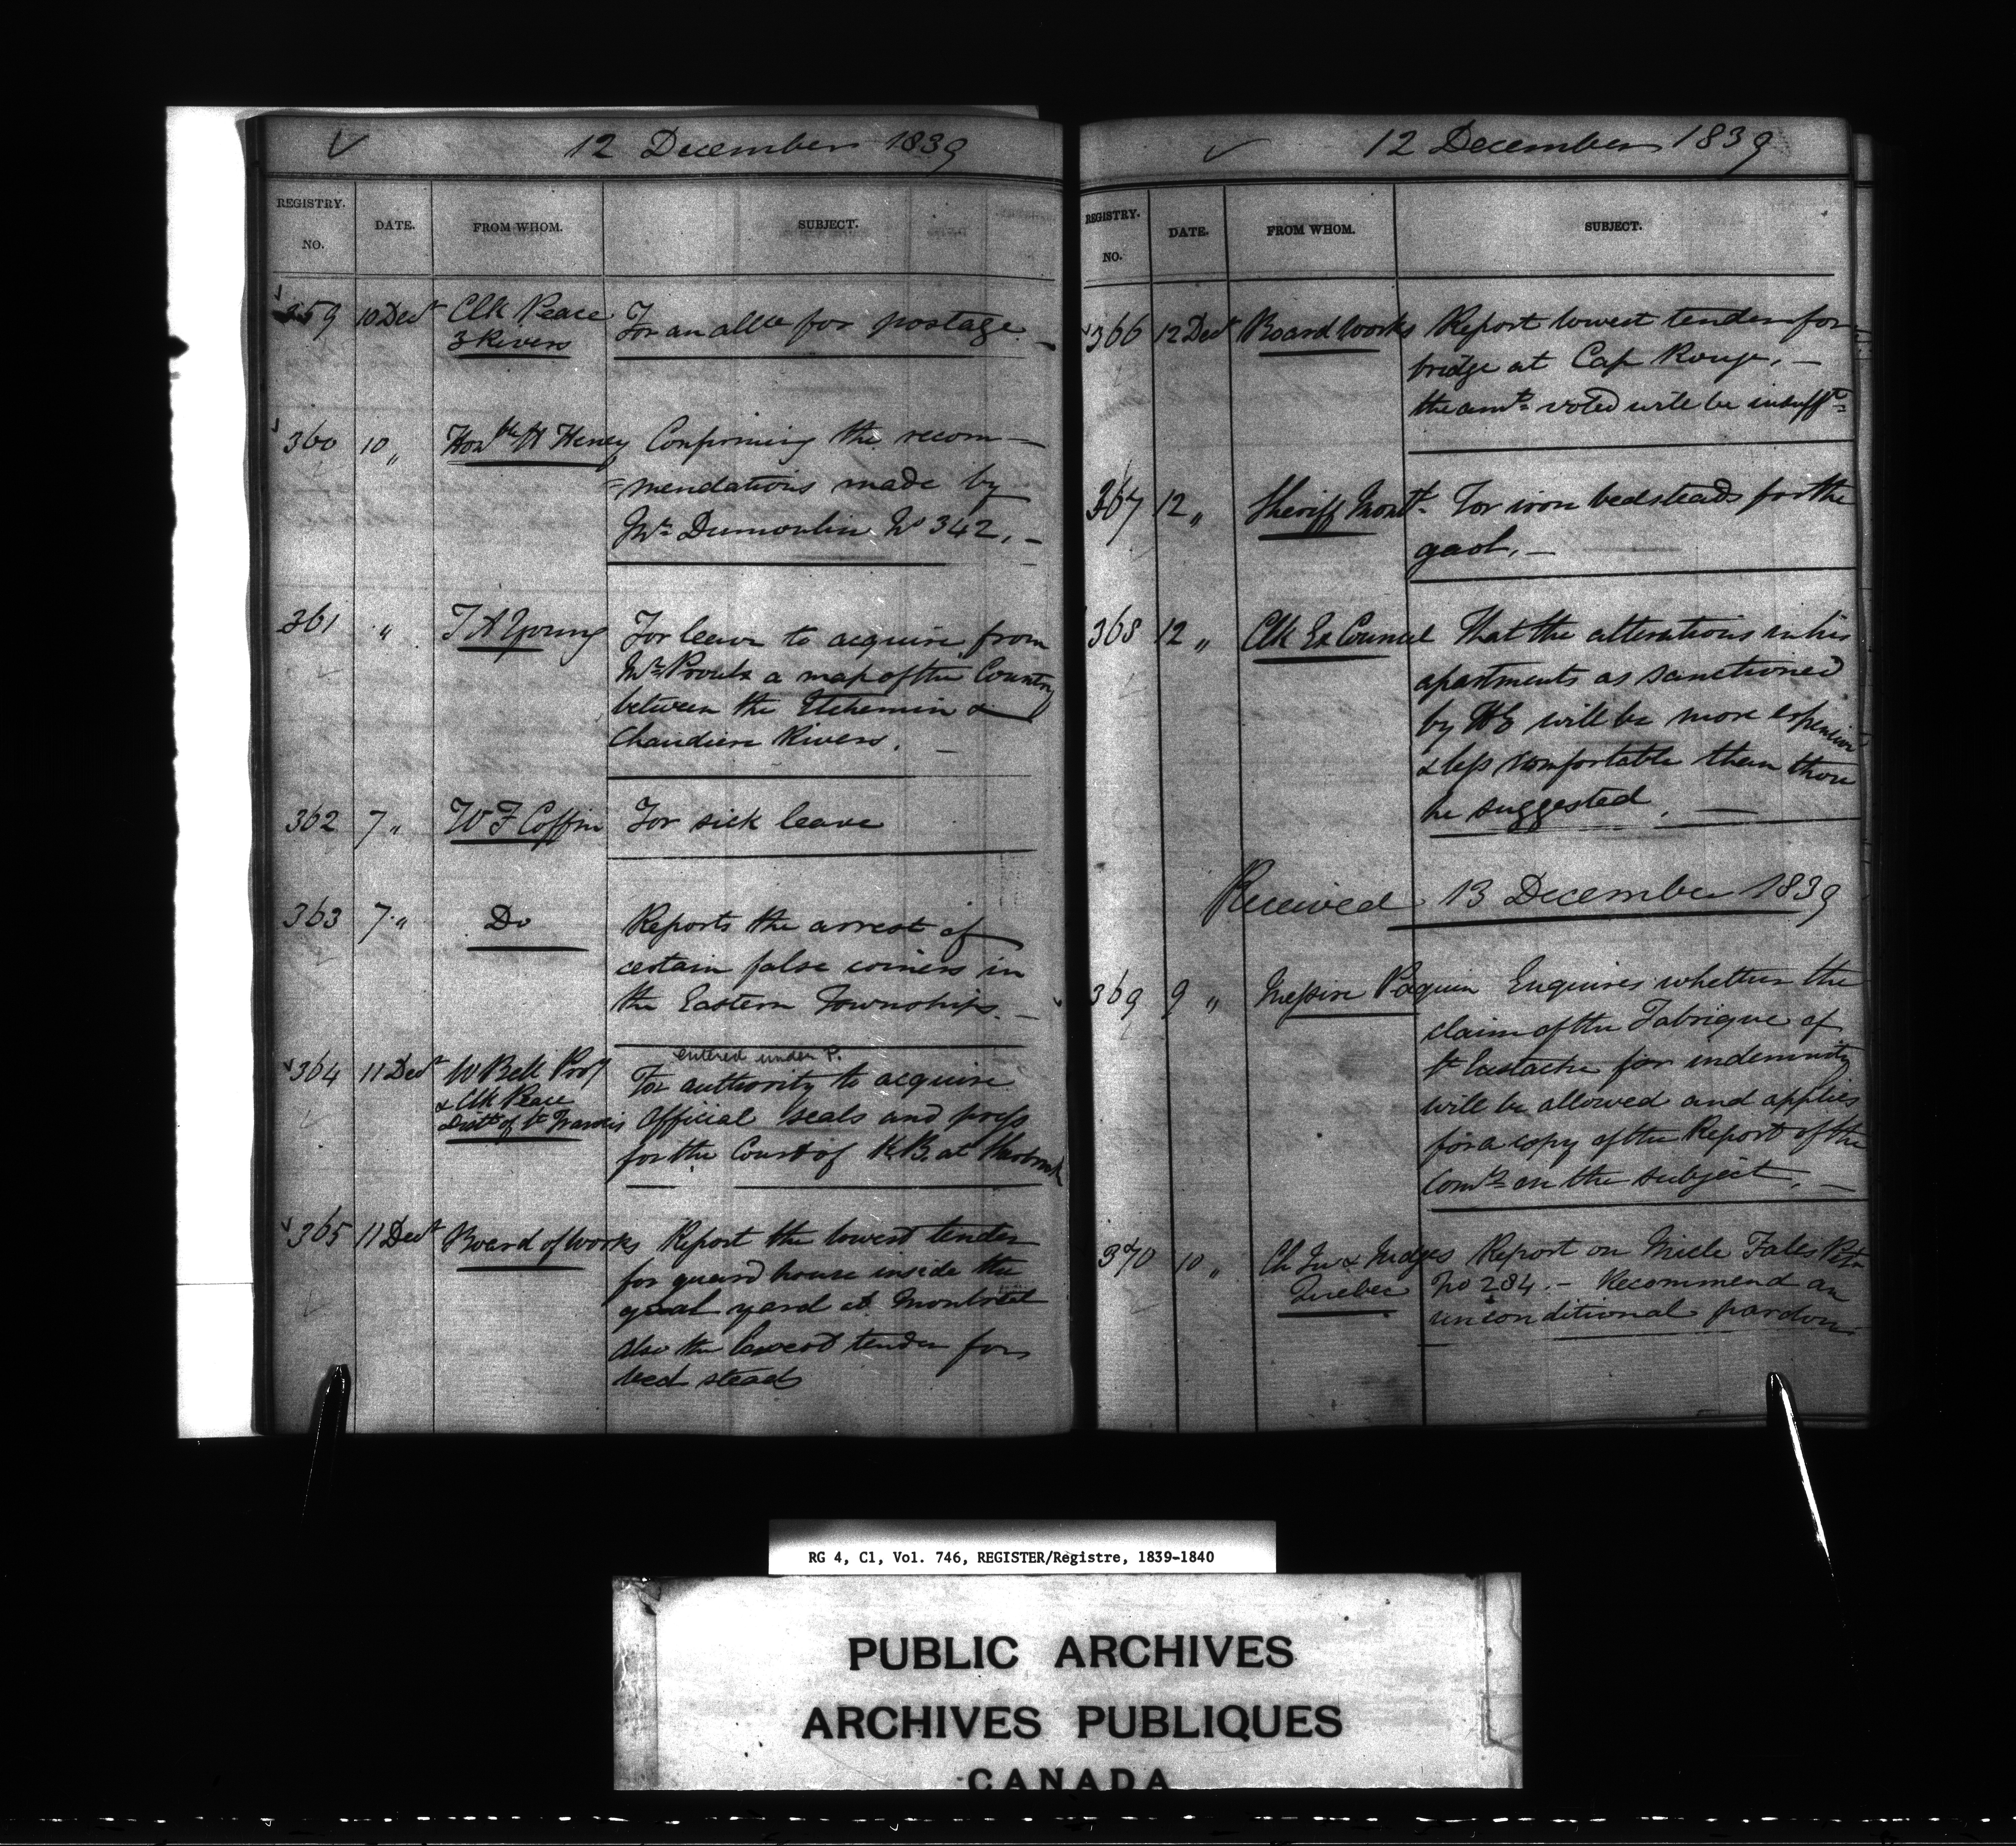 12 December 1839
REGISTRY. NO. DATE. FROM WHOM. SUBJECT.
359 10 Decr Clk Peace For an allce for postage. —
3 Rivers
360 10 „ Honble H Heney Confirming the recom—
=mendations made by
Mr Dumoulin No 342. —
361 „ T A Young For leave to acquire from
Mr Proulx a map of the Country
between the Etchemin &
Chaudiere Rivers. —
362 7 „ W F Coffin For sick leave
363 7 „ Do Reports the arrest of
certain false coiners in
the Eastern Townships. —
entered under P.
364 11 Decr W Bell Proy For authority to acquire
& Clk Peace Official seals and press
Distt of St Francis for the Court of K.B. at
365 11 Decr Board of Works Report the lowest tender
for guard house inside the
goal yard at Montreal
also the lowest tender for
bed steads
12 December 1839
REGISTRY. NO. DATE. FROM WHOM. SUBJECT.
366 12 Decr Board Works Report lowest tender for
bridge at Cap Rouge. —
the amt voted will be insufft
367 12 „ Sheriff Montl For iron bedsteads for the
gaol. —
368 12 „ Clk Ex Council That the alterations in his
apartments as sanctioned
by HE will be more expensive
& less comfortable than those
he suggested. —
Received 13 December 1839
369 9 „ Messire Paquin Enquires whether the
claim of the Fabrique of
St Eustache for indemnity
will be allowed and applies
for a copy of the Report of the
Comrs on the subject. —
370 10 „ Ch Ju & Judges Report on Petn
Quebec No 284. — Recommend an
unconditional pardon
RG 4, C1, Vol. 746, REGISTER/Registre, 1839-1840
PUBLIC ARCHIVES
ARCHIVES PUBLIQUES
CANADA